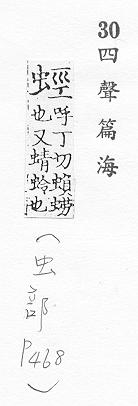 30 四聲篇海
蛵 呼丁切蝜蟧
也又蜻蛉也
(虫部 P468)